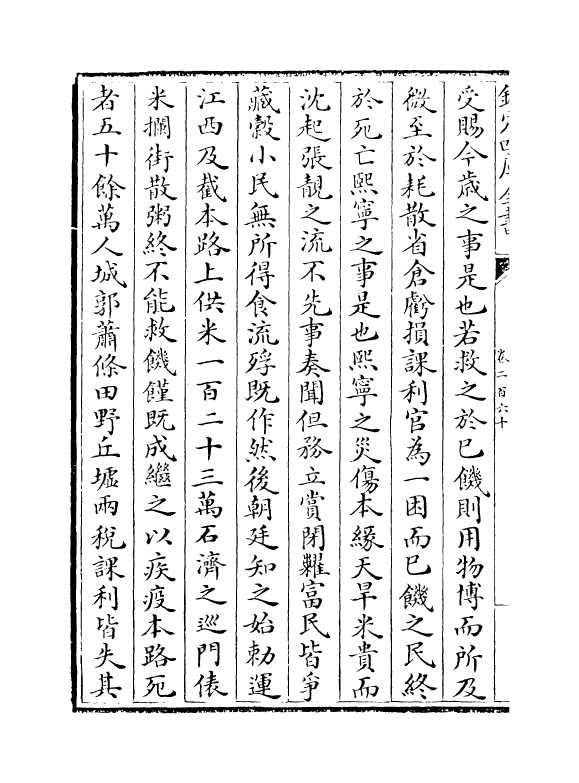 欽定四庫全書
卷二百六十
受賜今歲之事是也若救之於已饑則用物博而所及
微至於耗散省倉虧損課利官為一困而已饑之民終
於死亡熙寧之事是也熙寧之災傷本緣天旱米貴而
沈起張靚之流不先事奏聞但務立賞閉糶富民皆爭
藏糓小民無所得食流殍既作然後朝廷知之始勅運
江西及截本路上供米一百二十三萬石濟之巡門俵
米攔街散粥終不能救饑饉既成繼之以疾疫本路死
者五十餘萬人城郭蕭條田野丘墟兩稅課利皆失其